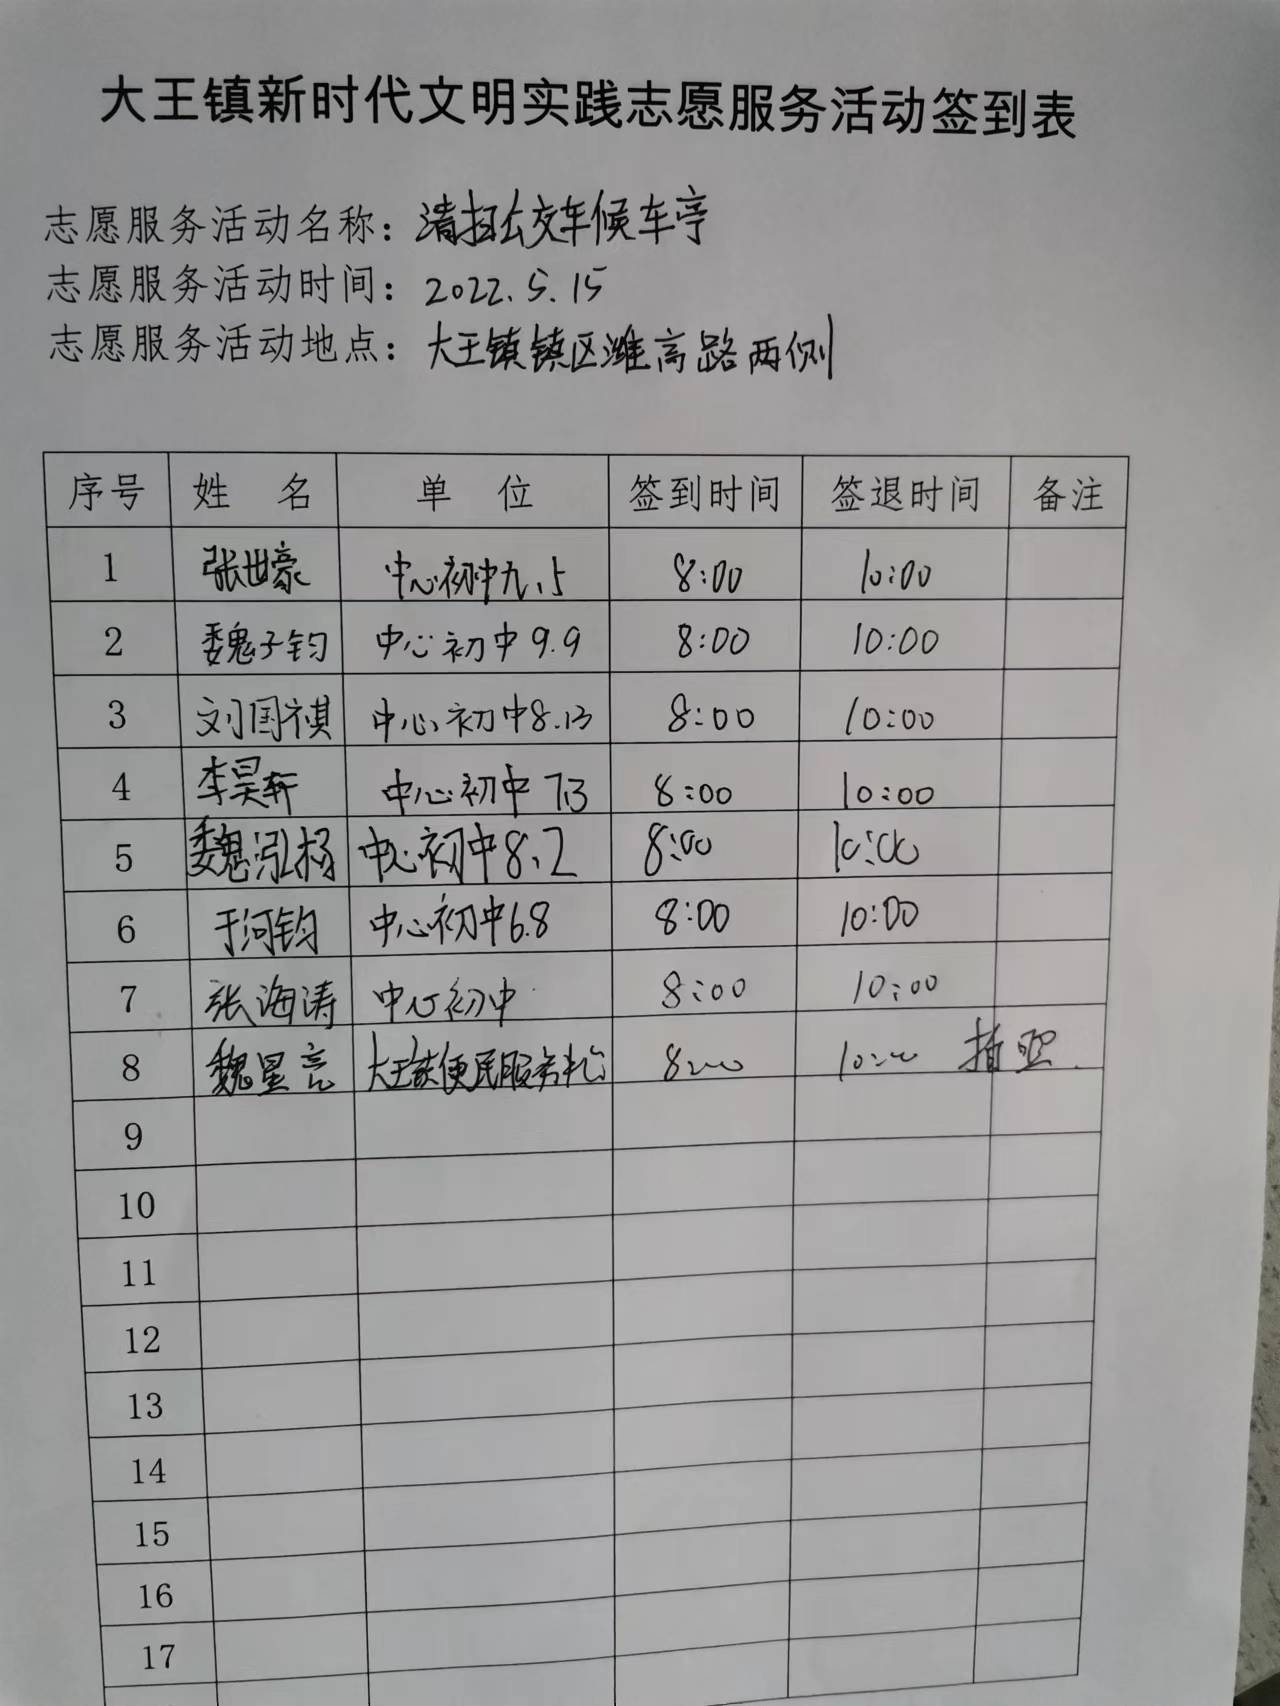 大王镇新时代文明实践志愿服务活动签到表
志愿服务活动名称：清扫公交车候车亭
志愿服务活动时间：2022.5.15
志愿服务活动地点：大王镇镇区潍高路两侧
序号 姓 名 单 位 签到时间 签退时间 备注
1 张世豪 中心初中九.5 8:00 10:00
2 魏子钧 中心初中9.9 8:00 10:00
3 刘国祺 中心初中8.13 8:00 10:00
4 李昊轩 中心初中7.3 8:00 10:00
5 魏泓杨 中心初中8.2 8:00 10:00
6 于河钧 中心初中6.8 8:00 10:00
7 张海涛 中心初中 8:00 10:00
8 魏星亮 大王镇便民服务 8:00 10:00
9
10
11
12
13
14
15
16
17